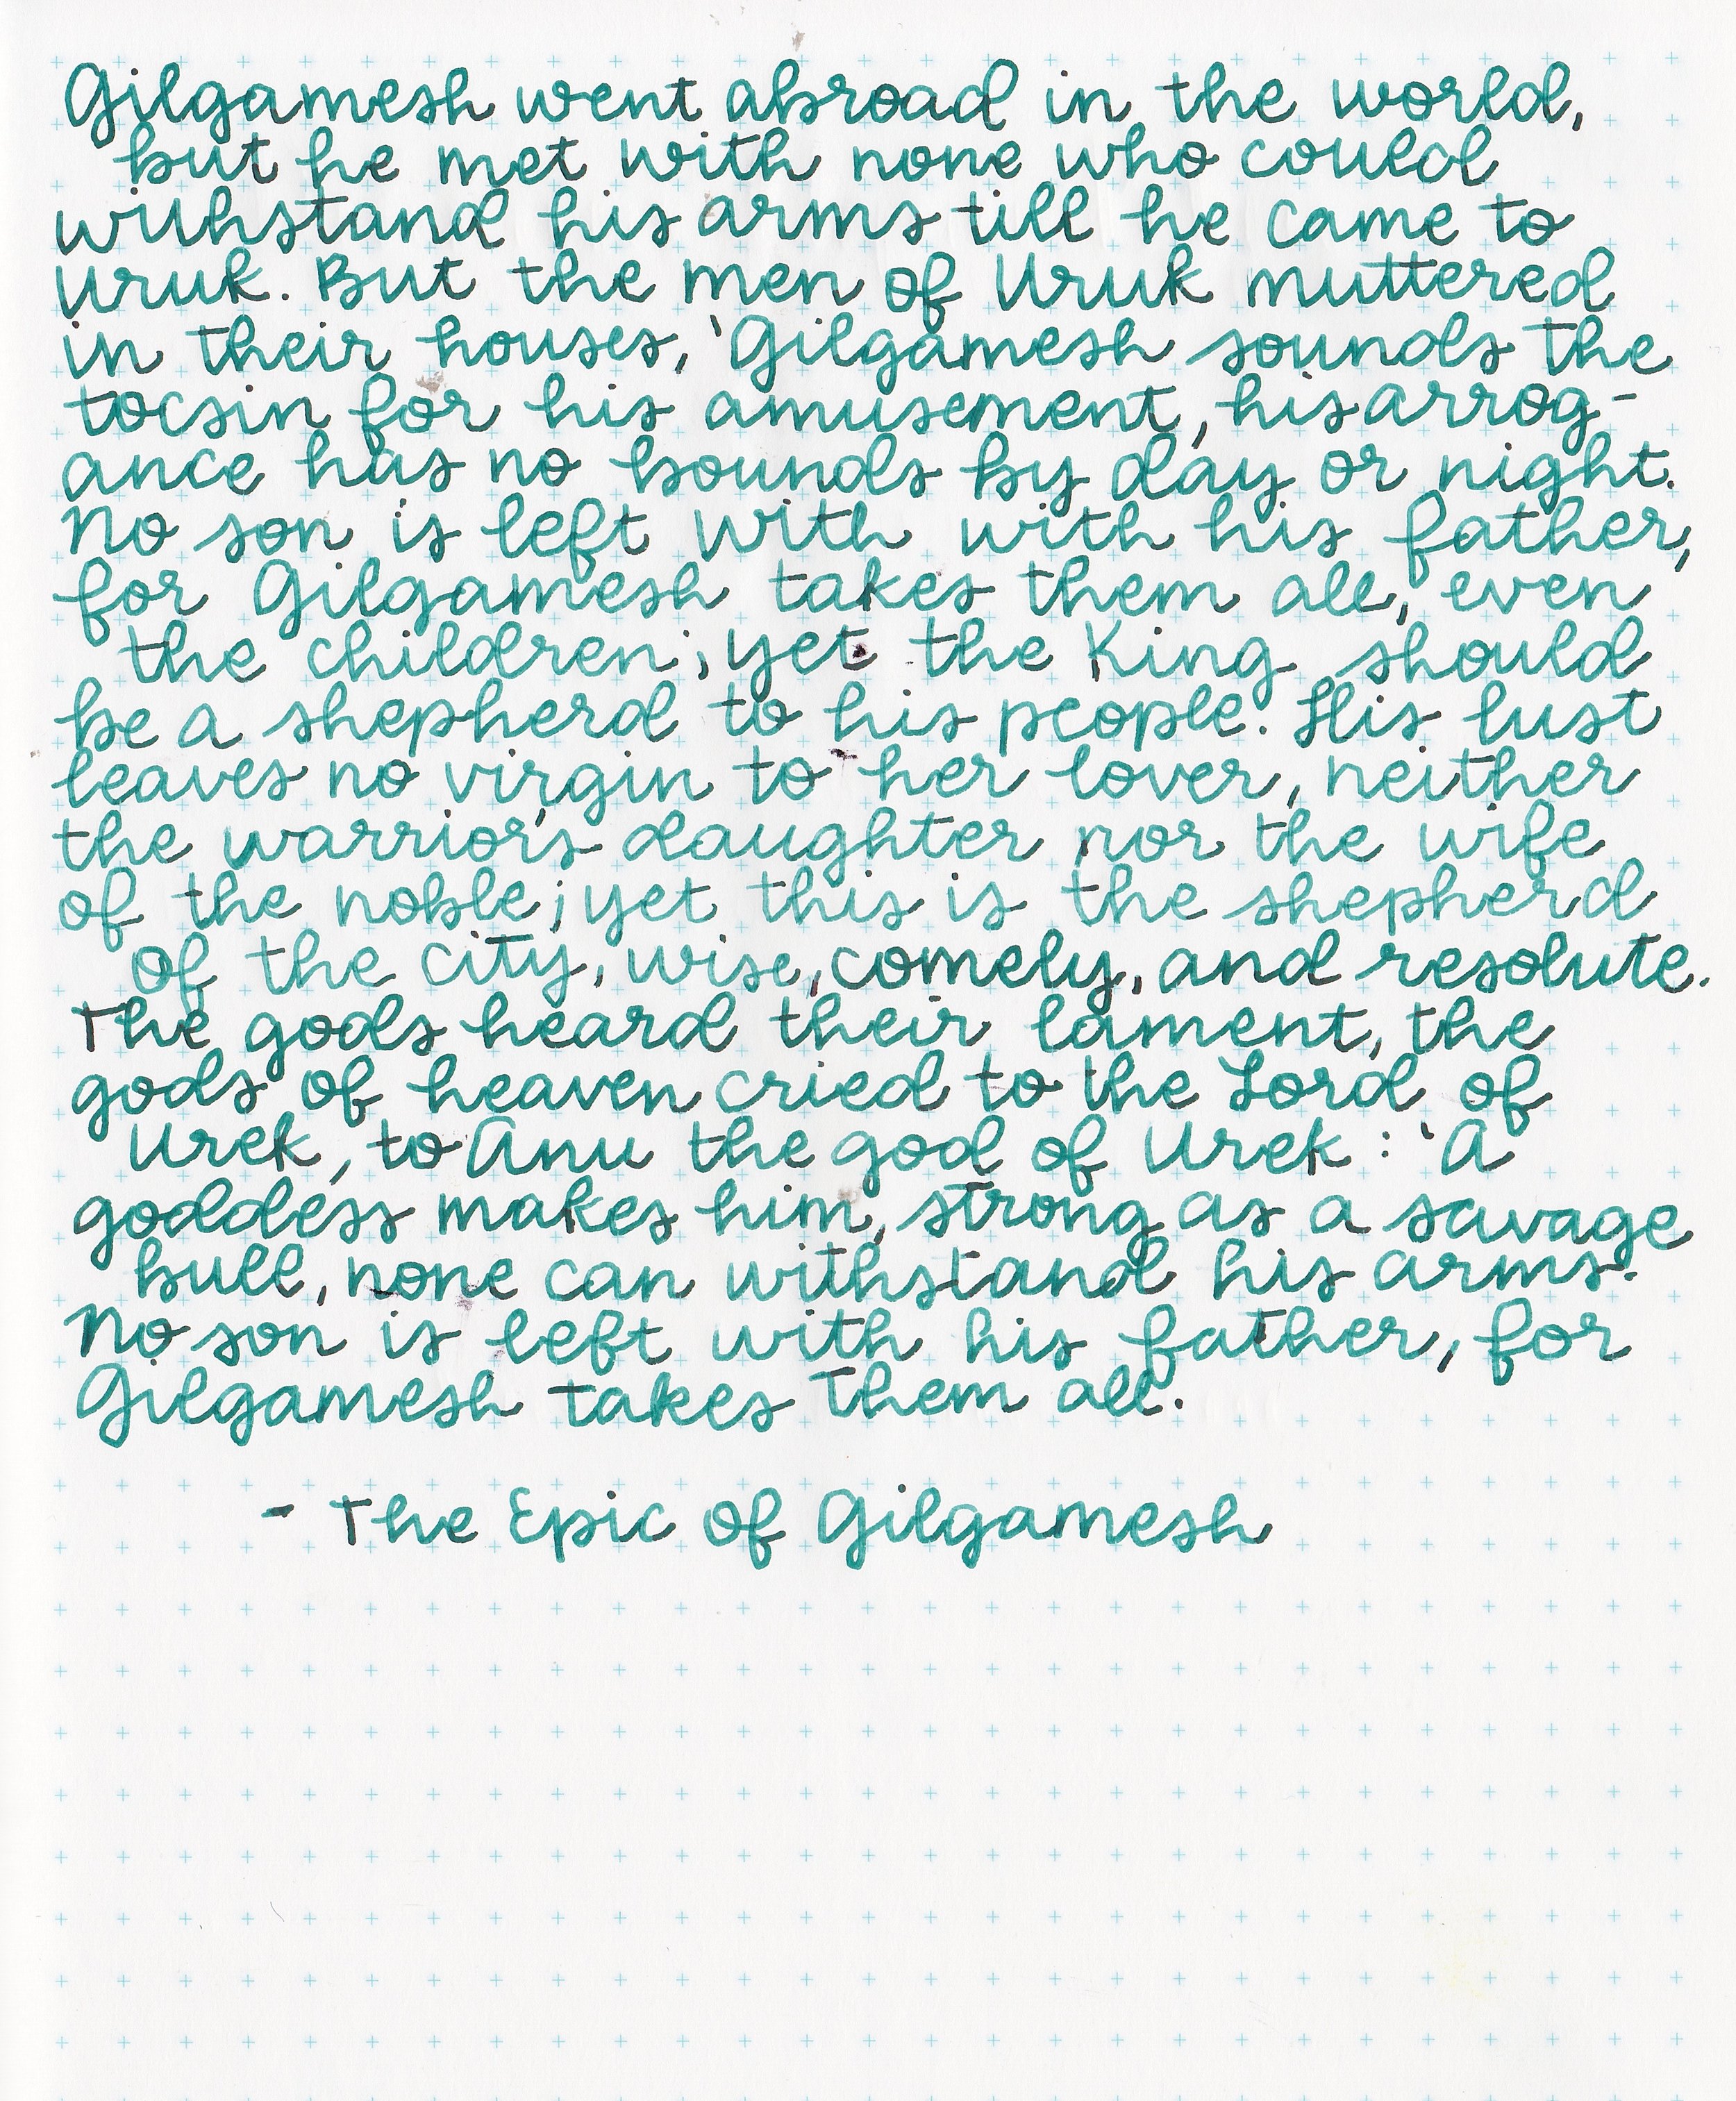 Gilgamesh went abroad in the world,
but he met with none who could
withstand his arms till he came to
Uruk. But the men of Uruk muttered
in their houses, 'Gilgamesh sounds the
tocsin for his amusement, his arrog-
ance has no bounds by day or night.
No son is left with with his father,
for Gilgamesh takes them all, even
the children; yet the King should
be a shepherd to his people. His lust
leaves no virgin to her lover, neither
the warrior's daughter nor the wife
of the noble; yet this is the shepherd
of the city, wise, comely, and resolute.
The gods heard their lament, the
gods of heaven cried to the Lord of
Urek, to Anu the god of Urek: 'A
goddess makes him, strong as a savage
bull, none can withstand his arms.
No son is left with his father, for
Gilgamesh takes them all.
- The Epic of Gilgamesh